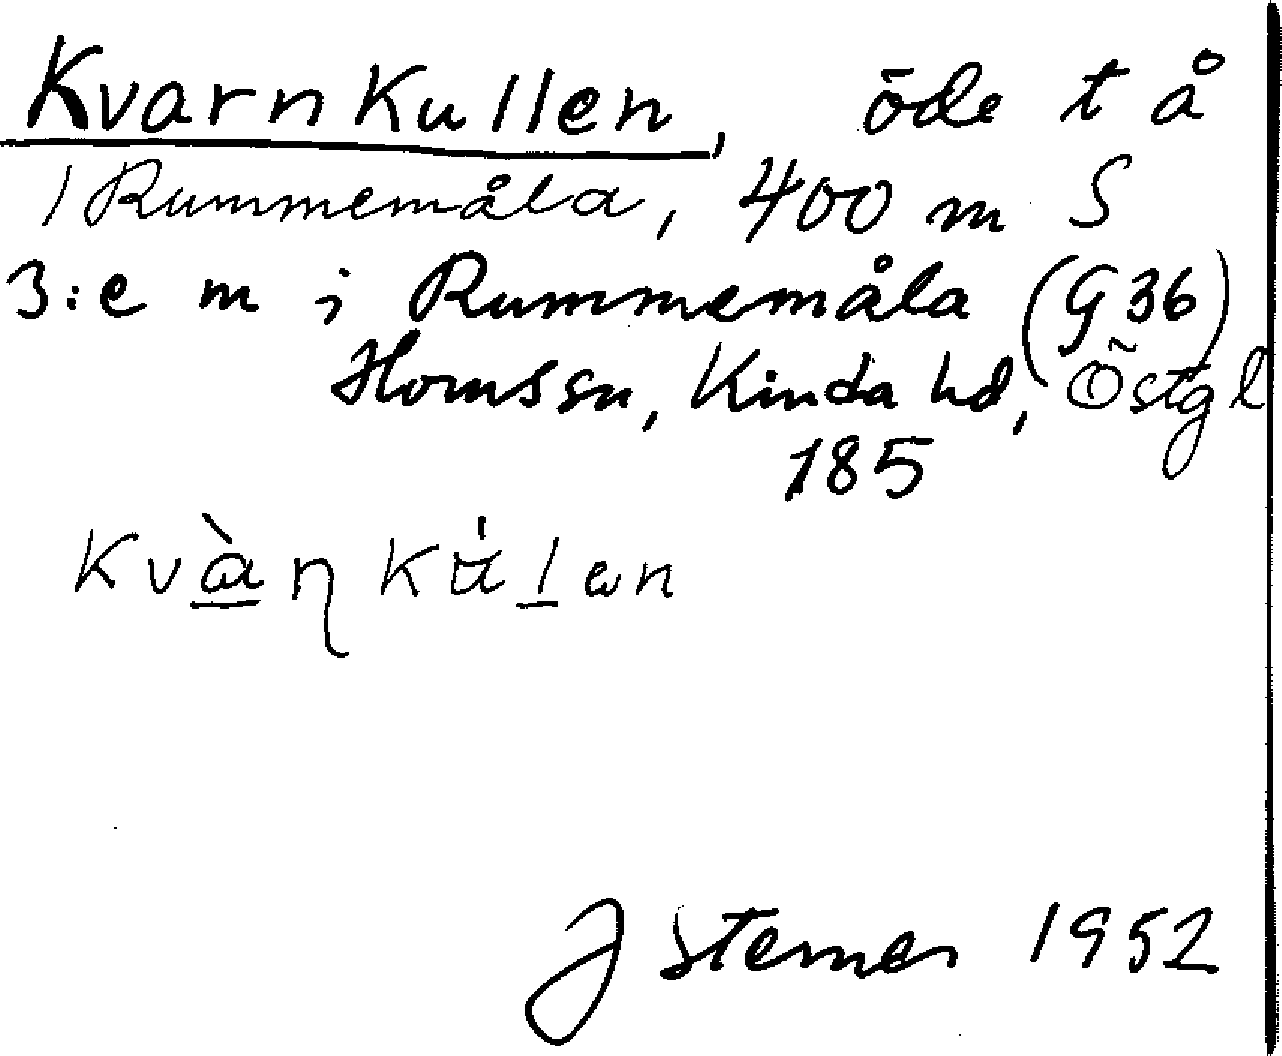 Kvarnkullen, öde t å
/ Rummemåla, 400 m S
3:e m i Rummemåla (G 36)
Hornssn, Kinda hd, Östgl
185
J Sterner 1952